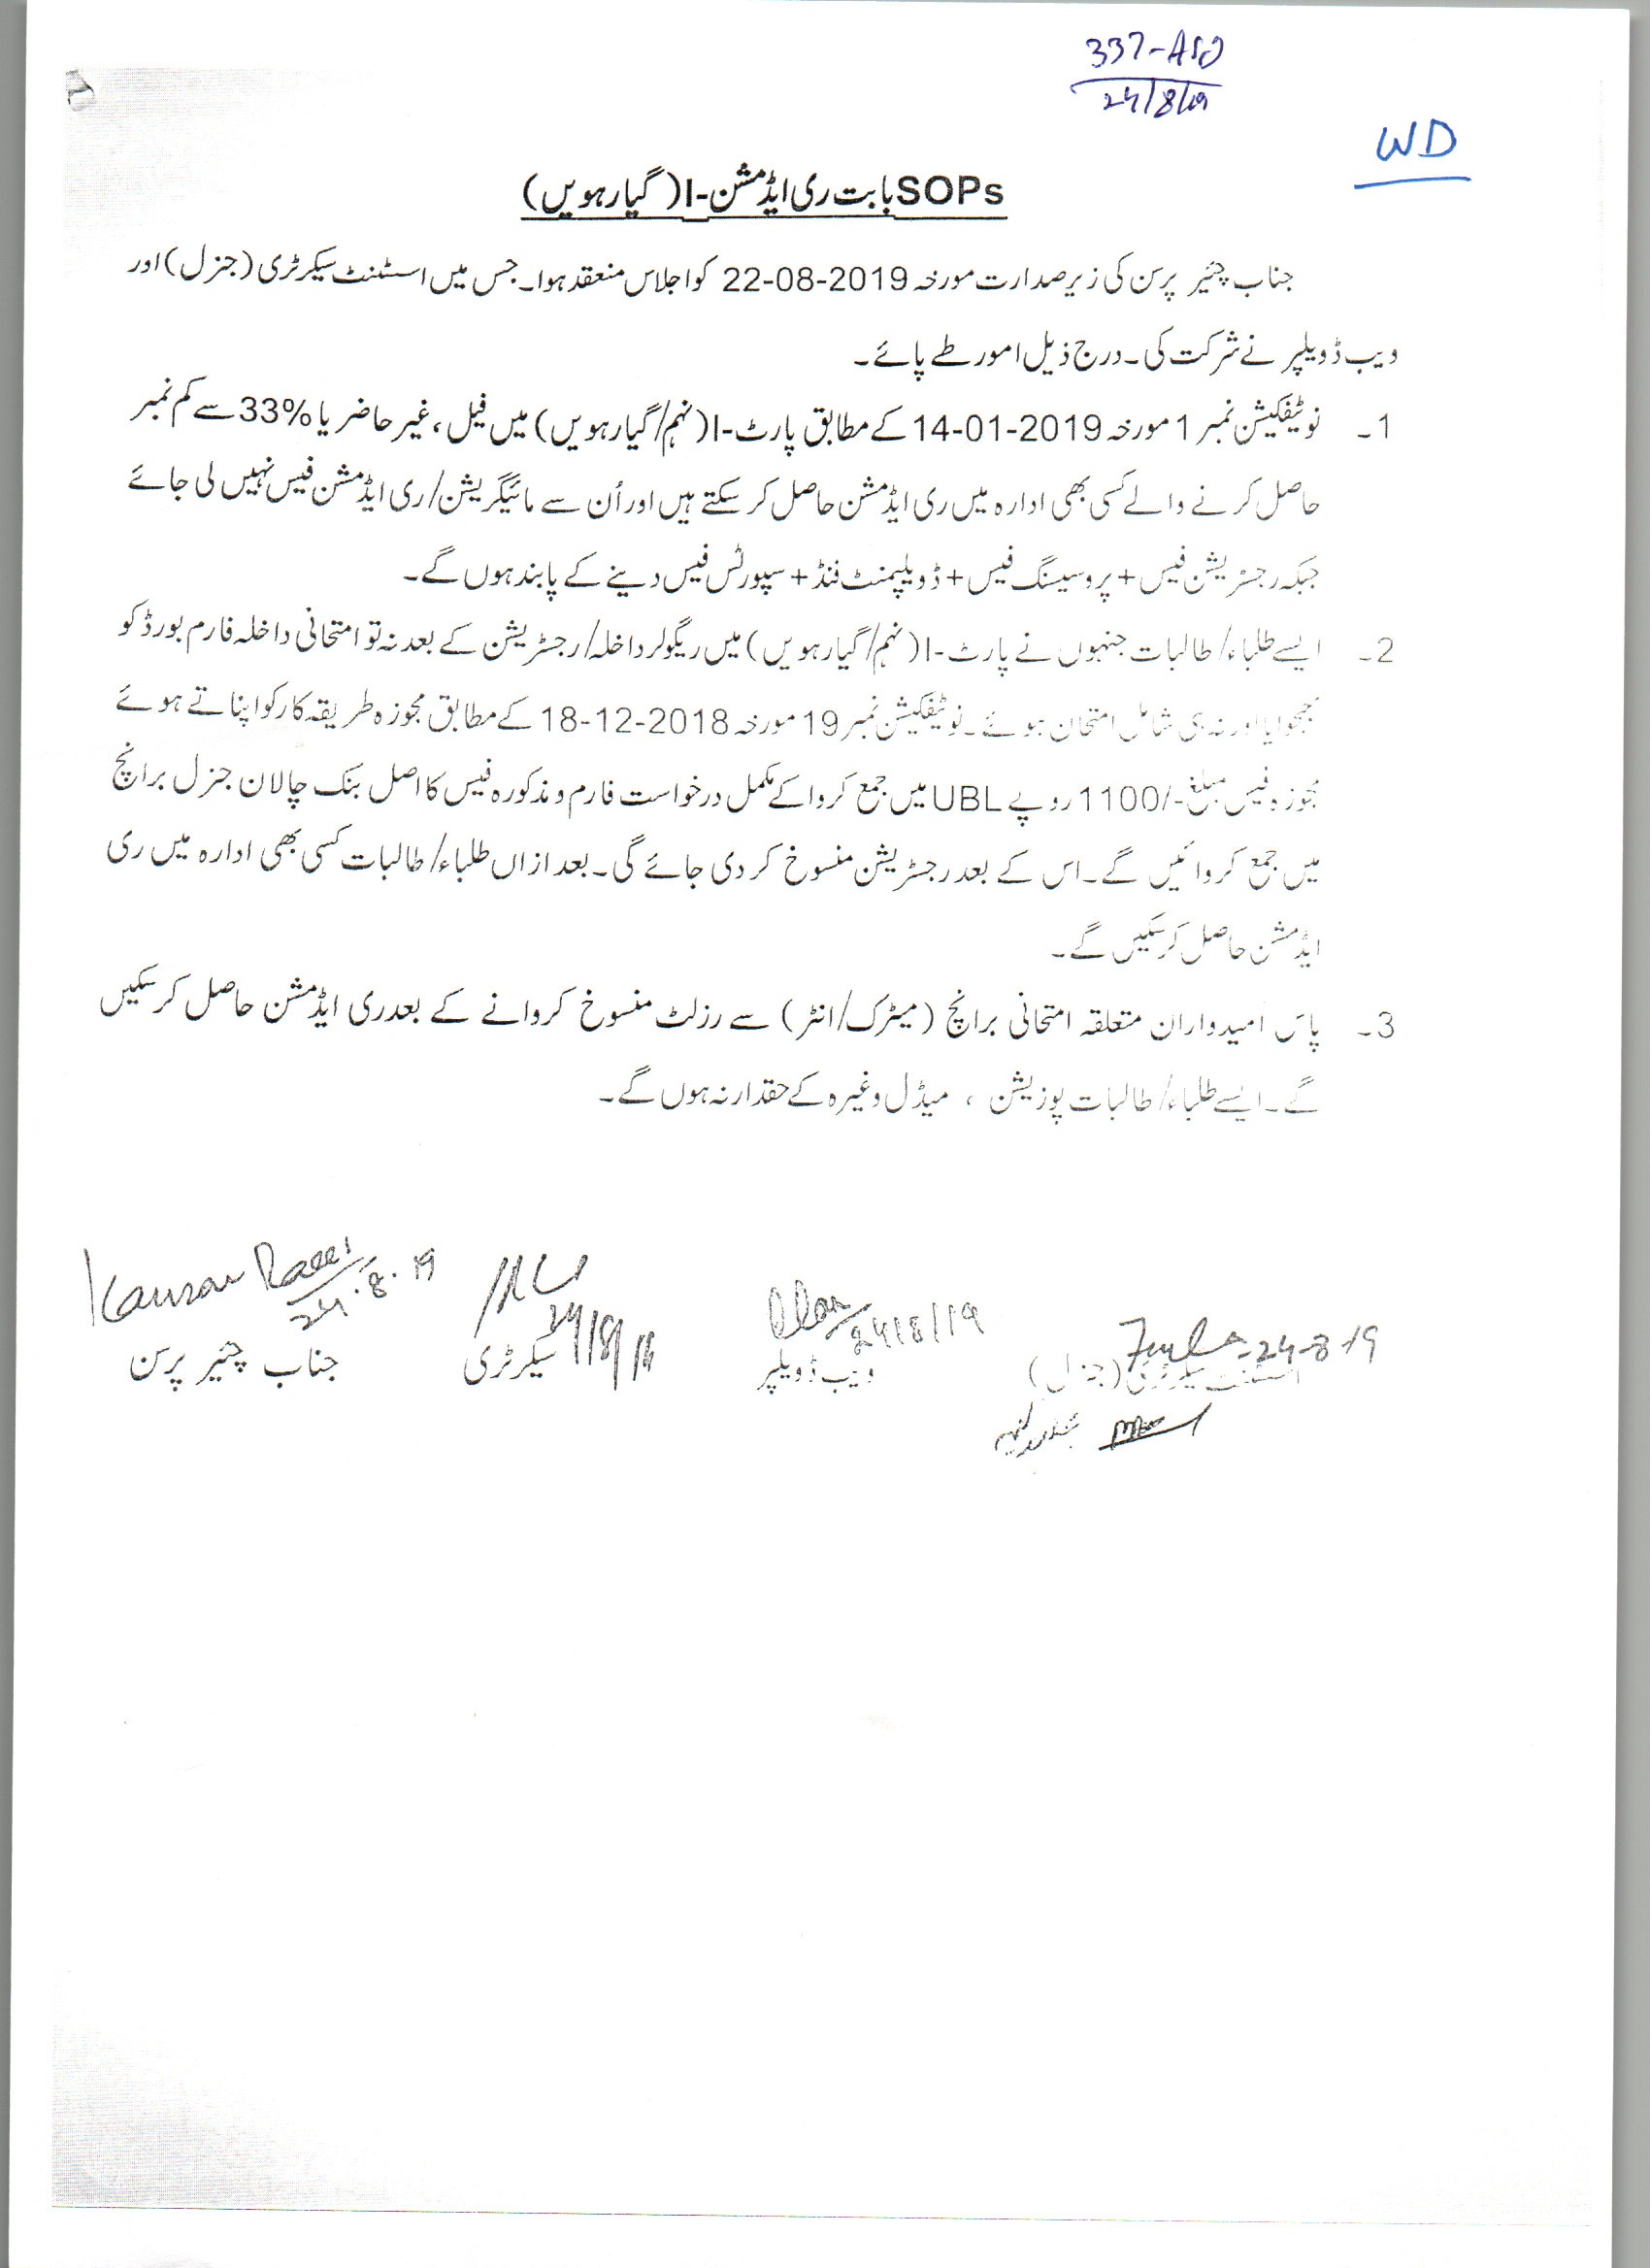 337-ASO
24/8/19
WD
SOPs بابت ری ایڈمشن-I (گیارہویں)
جناب چیئر پرسن کی زیر صدارت مورخہ 22-08-2019 کو اجلاس منعقد ہوا۔ جس میں اسسٹنٹ سیکرٹری (جنرل) اور
ویب ڈویلپر نے شرکت کی۔ درج ذیل امور طے پائے۔
1۔ نوٹیفکیشن نمبر 1 مورخہ 14-01-2019 کے مطابق پارٹ-I (نہم/گیارہویں) میں فیل، غیر حاضر یا 33% سے کم نمبر
حاصل کرنے والے کسی بھی ادارہ میں ری ایڈمشن حاصل کر سکتے ہیں اور اُن سے مائیگریشن/ری ایڈمشن فیس نہیں لی جائے
جبکہ رجسٹریشن فیس + پروسیسنگ فیس + ڈویلپمنٹ فنڈ + سپورٹس فیس دینے کے پابند ہوں گے۔
2۔ ایسے طلباء/طالبات جنہوں نے پارٹ-I (نہم/گیارہویں) میں ریگولر داخلہ/رجسٹریشن کے بعد نہ تو امتحانی داخلہ فارم بورڈ کو
بھجوایا اور نہ ہی شامل امتحان ہوئے۔ نوٹیفکیشن نمبر 19 مورخہ 18-12-2018 کے مطابق مجوزہ طریقہ کار کو اپناتے ہوئے
مجوزہ فیس مبلغ -/1100 روپے UBL میں جمع کروا کے مکمل درخواست فارم و مذکورہ فیس کا اصل بنک چالان جنرل برانچ
میں جمع کروائیں گے۔ اس کے بعد رجسٹریشن منسوخ کر دی جائے گی۔ بعد ازاں طلباء/طالبات کسی بھی ادارہ میں ری
ایڈمشن حاصل کر سکیں گے۔
3۔ پاس امیدواران متعلقہ امتحانی برانچ (میٹرک/انٹر) سے رزلٹ منسوخ کروانے کے بعد ری ایڈمشن حاصل کر سکیں
گے۔ ایسے طلباء/طالبات پوزیشن ، میڈل وغیرہ کے حقدار نہ ہوں گے۔
24-8-19
اسسٹنٹ سیکرٹری (جنرل)
24/8/19
ویب ڈویلپر
سیکرٹری
24.8.19
جناب چیئر پرسن